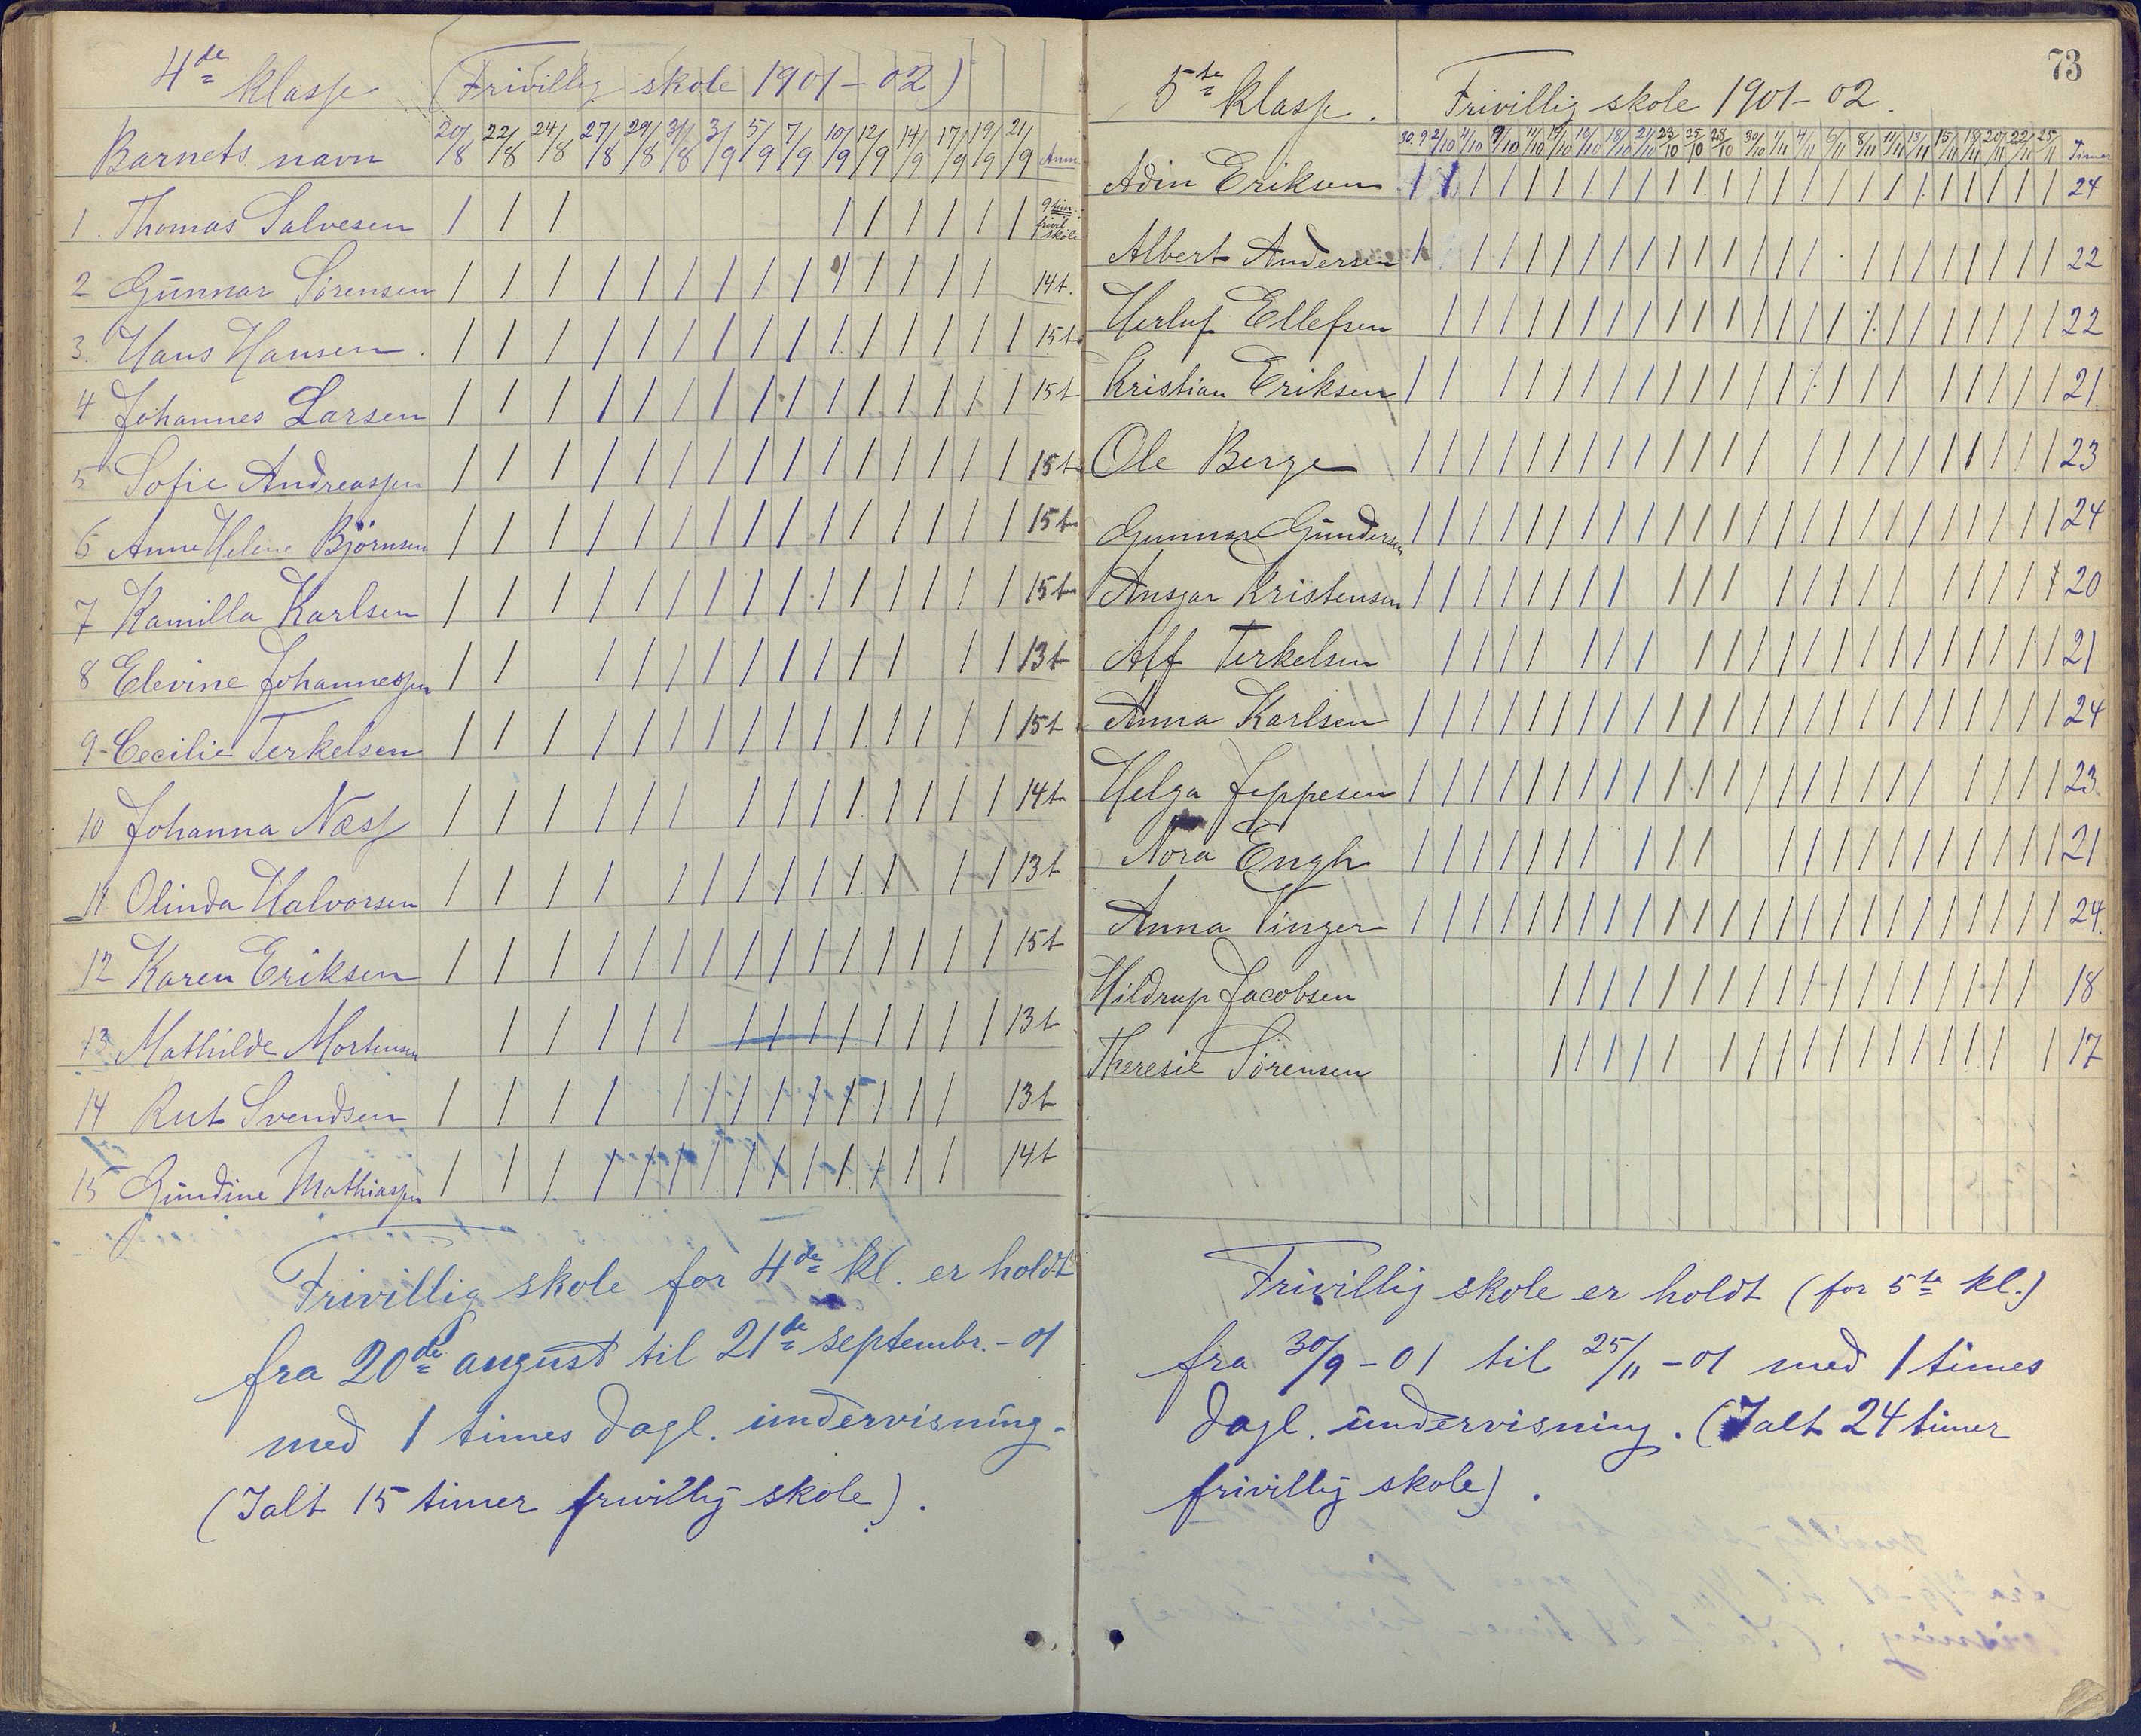 4de klasse (Frivillig skole 1901-02)
Barnets navn 20/8 22/8 24/8 27/8 29/8 31/8 3/9 5/9 7/9 10/9 12/9 14/9 17/9 19/9 21/9 Anm.
1. Thomas Salvesen / / / / / / / / / 9 tim. frivil. skole
2 Gunnar Sørensen / / / / / / / / / / / / / / 14 t.
3. Hans Hansen / / / / / / / / / / / / / / / 15 t
4 Johannes Larsen / / / / / / / / / / / / / / / 15 t
5 Sofie Andreassen / / / / / / / / / / / / / / / 15 t
6 Anne Helene Björnsen / / / / / / / / / / / / / / / 15 t
7 Kamilla Karlsen / / / / / / / / / / / / / / / 15 t
8 Elevine Johannessen / / / / / / / / / / / / / 13 t
9 - Cecilie Terkelsen / / / / / / / / / / / / / / / 15 t
10 Johanna Næss / / / / / / / / / / / / / / 14 t
11 Olinda Halvorsen / / / / / / / / / / / / / 13 t
12 Karen Eriksen / / / / / / / / / / / / / / / 15 t
13 Mathilde Mortensen / / / / / / / / / / / / / 13 t
14 Rut Svendsen / / / / / / / / / / / / / 13 t
15 Gundine Mathiassen / / / / / / / / / / / / / / 14 t
Frivillig skole for 4de kl. er holdt
fra 20de august til 21de septembr. - 01
med 1 times dagl. undervisning.
(Ialt 15 timer frivillig skole).
73
5te klasse. Frivillig skole 1901-02.
30.9 2/10 4/10 9/10 11/10 14/10 16/10 18/10 21/10 23/10 25/10 28/10 30/10 1/11 4/11 6/11 8/11 11/11 13/11 15/11 18/11 20/11 22/11 25/11 Timer
Adin Eriksen / / / / / / / / / / / / / / / / / / / / / / / / 24
Albert Andersen / / / / / / / / / / / / / / / / / / / / / / 22
Herluf Ellefsen / / / / / / / / / / / / / / / / / / / / / / 22
Kristian Eriksen / / / / / / / / / / / / / / / / / / / / / 21
Ole Berge / / / / / / / / / / / / / / / / / / / / / / / 23
Gunnar Gundersen / / / / / / / / / / / / / / / / / / / / / / / / 24
Ansgar Kristensen / / / / / / / / / / / / / / / / / / / / 20
Alf Terkelsen / / / / / / / / / / / / / / / / / / / / / 21
Anna Karlsen / / / / / / / / / / / / / / / / / / / / / / / / 24
Helga Jeppesen / / / / / / / / / / / / / / / / / / / / / / / 23
Nora Engh / / / / / / / / / / / / / / / / / / / / / 21
Anna Vinger / / / / / / / / / / / / / / / / / / / / / / / / 24.
Hildrup Jacobsen / / / / / / / / / / / / / / / / / / 18
Theresie Sørensen / / / / / / / / / / / / / / / / / 17
Frivillig skole er holdt (for 5te kl.)
fra 30/9 - 01 til 25/11 - 01 med 1 times
dagl. undervisning. (Ialt 24 timer
frivillig skole).